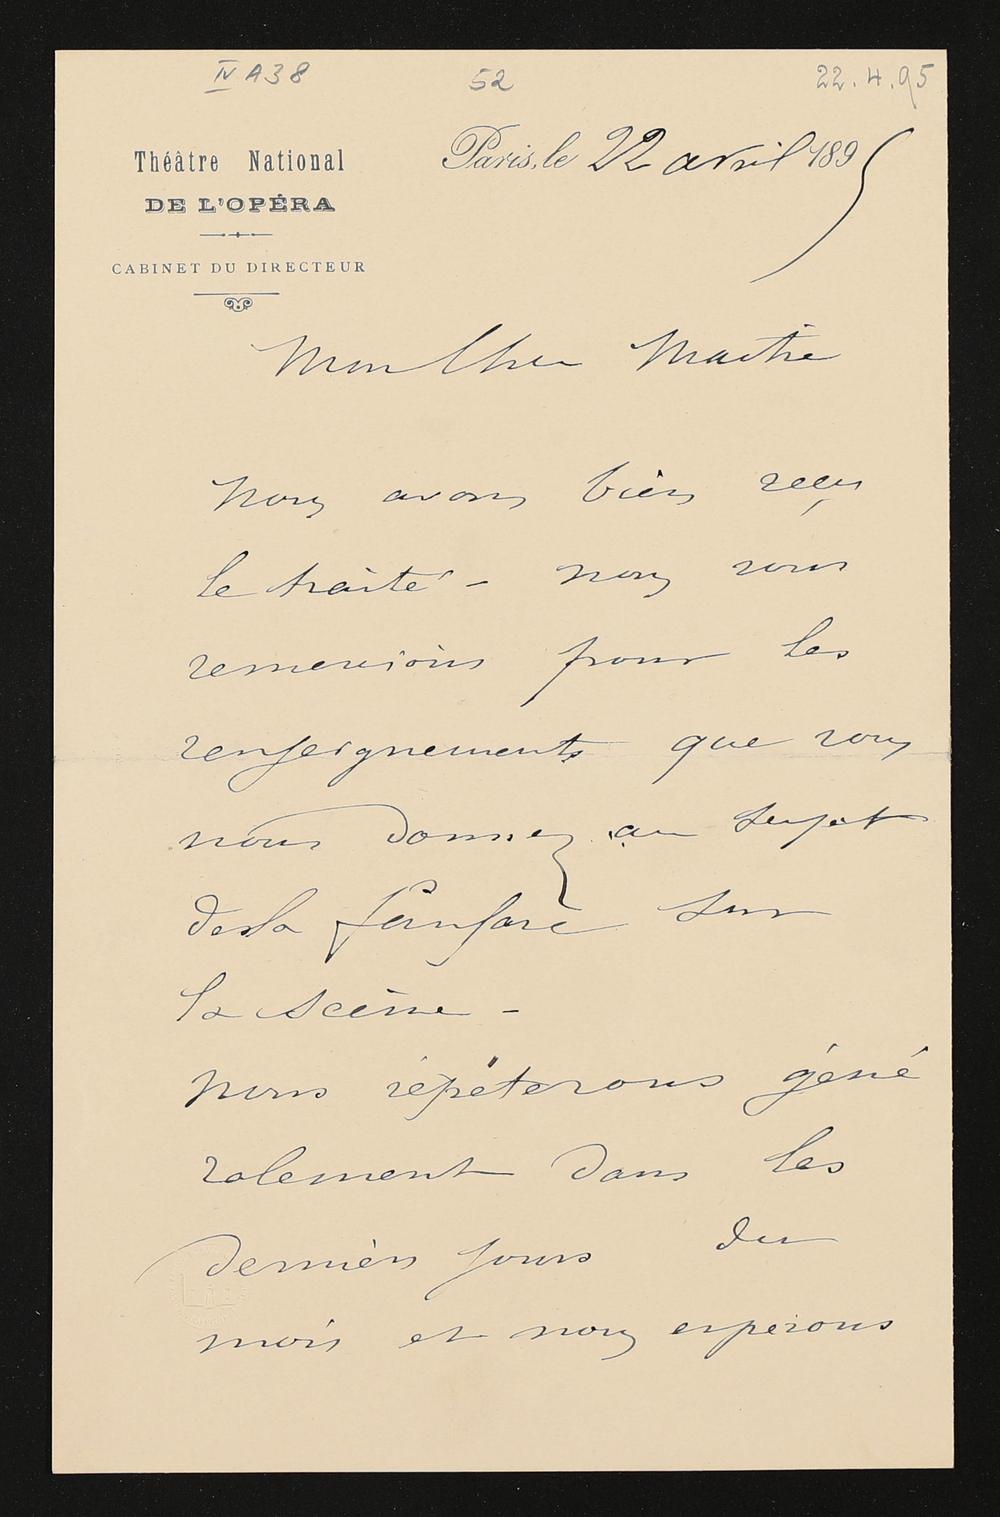 IV A38 52 22.4.95
Théâtre National
DE L'OPÉRA
CABINET DU DIRECTEUR
Paris, le 22 avril 1895
Mon Cher Maitre
Nous avons bien reçu
le traité - nous vous
remercions pour les
renseignements que vous
nous donnez au sujet
de la fanfare sur
la scène -
Nous répéterons géné
ralement dans les
derniers jours du
mois et nous esperons